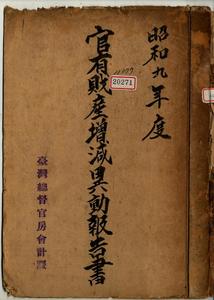 昭和九年度
官有財産増減異動報告書
20271
臺灣總督官房會計課